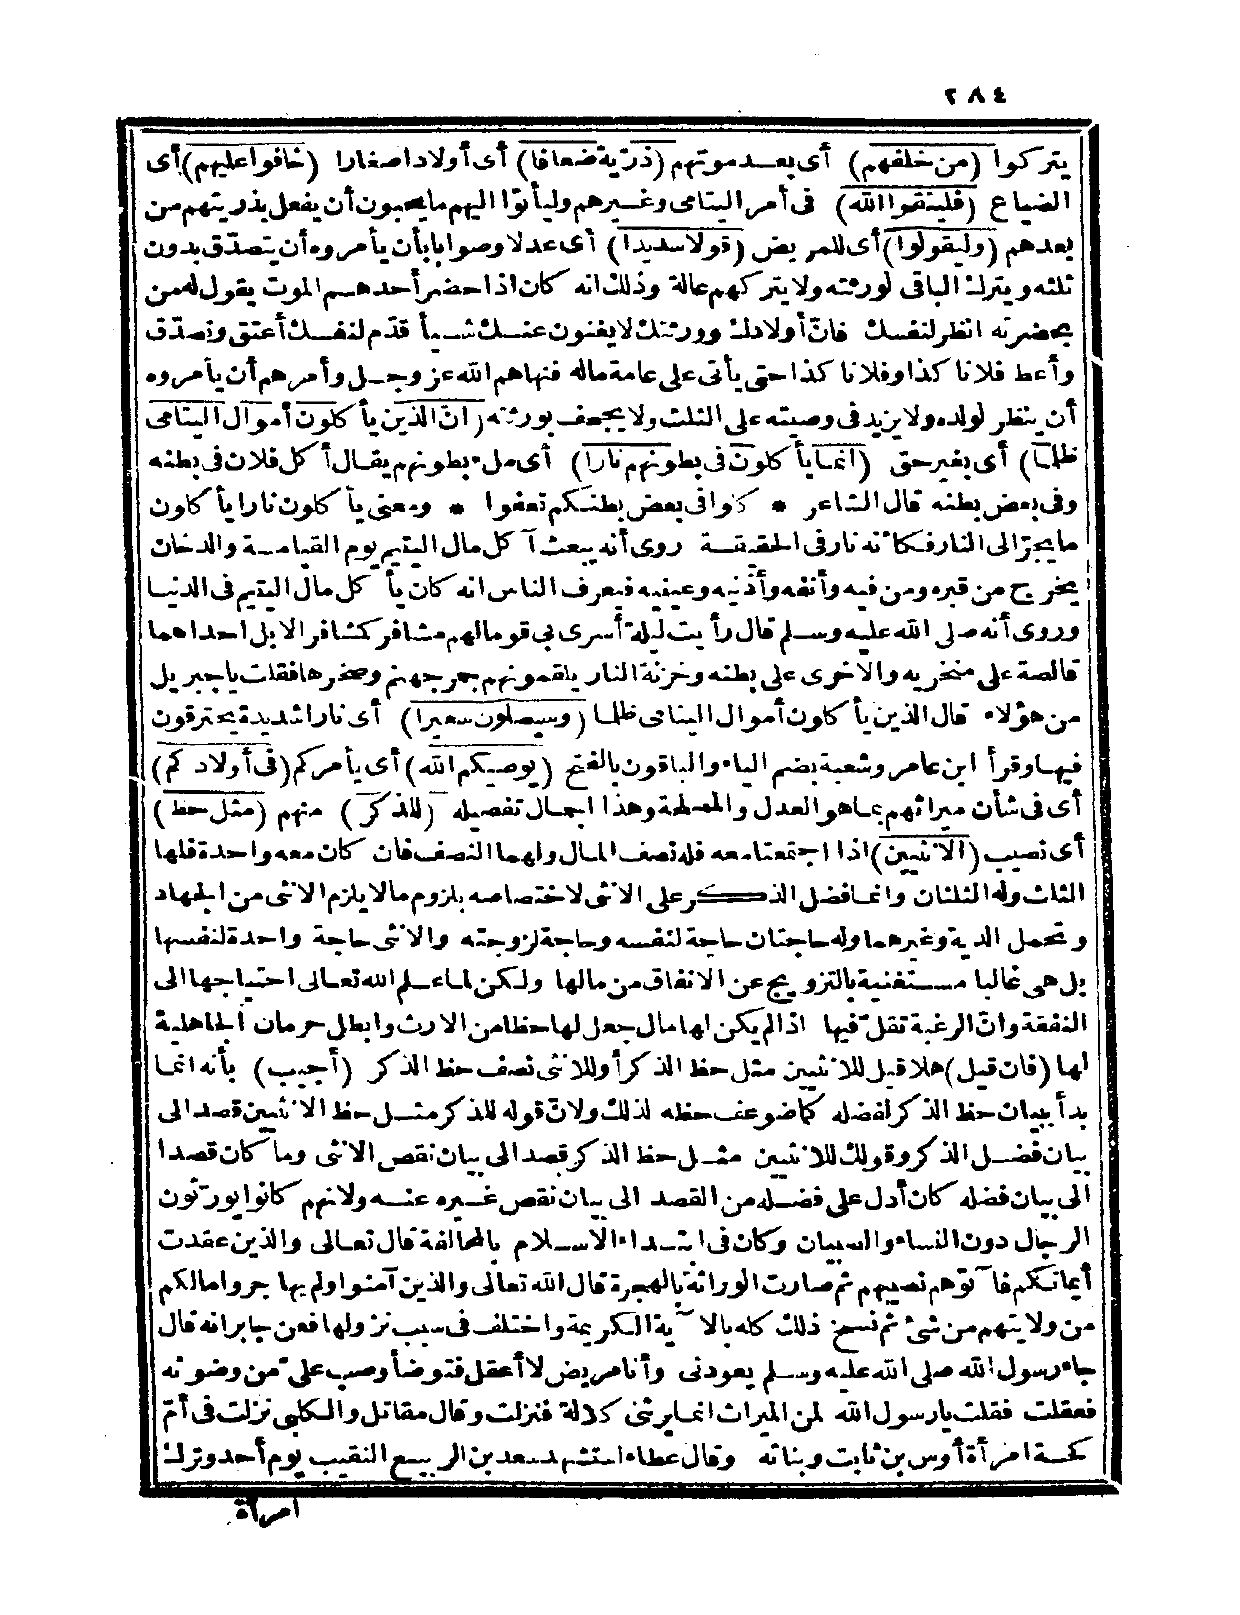 ٢٨٤
يتركوا (من خلفهم) أى بعد موتهم (ذرّية ضعافا) أى أولادا صغارا (خافوا عليهم) أى
الضياع (فليتقوا الله) فى أمر اليتامى وغيرهم وليأتوا اليهم ما يحبون أن يفعل بذريتهم من
بعدهم (وليقولوا) أى للمريض (قولا سديدا) أى عدلا وصوابا بأن يأمروه أن يتصدّق بدون
ثلثه ويترك الباقى لورثته ولا يتركهم عالة وذلك انه كان اذا حضر أحدهم الموت يقول له من
بحضرته انظر لنفسك فانّ أولادك وورثتك لا يغنون عنك شيأ قدّم لنفسك أعتق وتصدّق
وأعط فلانا كذا وفلانا كذا حتى يأتى على عامة ماله فنهاهم الله عز وجل وأمرهم أن يأمروه
أن ينظر لولده ولا يزيد فى وصيته على الثلث ولا يجحف بورثته (انّ الذين يأكلون أموال اليتامى
ظلما) أى بغير حق (انما يأكلون فى بطونهم نارا) أى ملء بطونهم يقال أكل فلان فى بطنه
وفى بعض بطنه قال الشاعر * كلوا فى بعض بطنكم تعفوا * ومعنى يأكلون نارا يأكلون
ما يجرّ الى النار فكأنه نار فى الحقيقة روى أنه يبعث آكل مال اليتيم يوم القيامة والدخان
يخرج من قبره ومن فيه وأنفه وأذنيه وعينيه فيعرف الناس انه كان يأكل مال اليتيم فى الدنيا
وروى أنه صلى الله عليه وسلم قال رأيت ليلة أسرى بى قوما لهم مشافر كمشافر الابل احداهما
قالصة على منخريه والاخرى على بطنه وخزنة النار يلقمونهم جمر جهنم وصخرها فقلت يا جبريل
من هؤلاء قال الذين يأكلون أموال اليتامى ظلما (وسيصلون سعيرا) أى نارا شديدة يحترقون
فيها وقرأ ابن عامر وشعبة بضم الياء والباقون بالفتح (يوصيكم الله) أى يأمركم (فى أولادكم)
أى فى شأن ميراثهم بما هو العدل والمصلحة وهذا اجمال تفصيله (للذكر) منهم (مثل حظ)
أى نصيب (الانثيين) اذا اجتمعتا معه فله نصف المال ولهما النصف فان كان معه واحدة فلها
الثلث وله الثلثان وانما فضل الذكر على الانثى لاختصاصه بلزوم ما لا يلزم الانثى من الجهاد
وتحمل الدية وغيرهما وله حاجتان حاجة لنفسه وحاجة لزوجته والانثى حاجة واحدة لنفسها
بل هى غالبا مستغنية بالتزويج عن الانفاق من مالها ولكن لما علم الله تعالى احتياجها الى
النفقة وانّ الرغبة تقلّ فيها اذا لم يكن لها مال جعل لها حظا من الارث وابطل حرمان الجاهلية
لها (فان قيل) هلا قيل للانثيين مثل حظ الذكر أو للانثى نصف حظ الذكر (أجيب) بأنه انما
بدأ ببيان حظ الذكر لفضله كما ضوعف حظه لذلك ولانّ قوله للذكر مثل حظ الانثيين قصد الى
بيان فضل الذكر وقولك للانثيين مثل حظ الذكر قصد الى بيان نقص الانثى وما كان قصدا
الى بيان فضله كان أدل على فضله من القصد الى بيان نقص غيره عنه ولانهم كانوا يورّثون
الرجال دون النساء والصبيان وكان فى ابتداء الاسلام بالمحالفة قال تعالى والذين عقدت
أيمانكم فآتوهم نصيبهم ثم صارت الوراثة بالهجرة قال الله تعالى والذين آمنوا ولم يهاجروا مالكم
من ولايتهم من شئ ثم نسخ ذلك كله بالآية الكريمة واختلف فى سبب نزولها فعن جابر انه قال
جاء رسول الله صلى الله عليه وسلم يعودنى وأنا مريض لا أعقل فتوضأ وصب علىّ من وضوئه
فعقلت فقلت يا رسول الله لمن الميراث انما يرثنى كلالة فنزلت وقال مقاتل والكلبى نزلت فى أمّ
كحة امرأة أوس بن ثابت وبناته وقال عطاء استشهد سعد بن الربيع النقيب يوم أحد وترك
امرأة